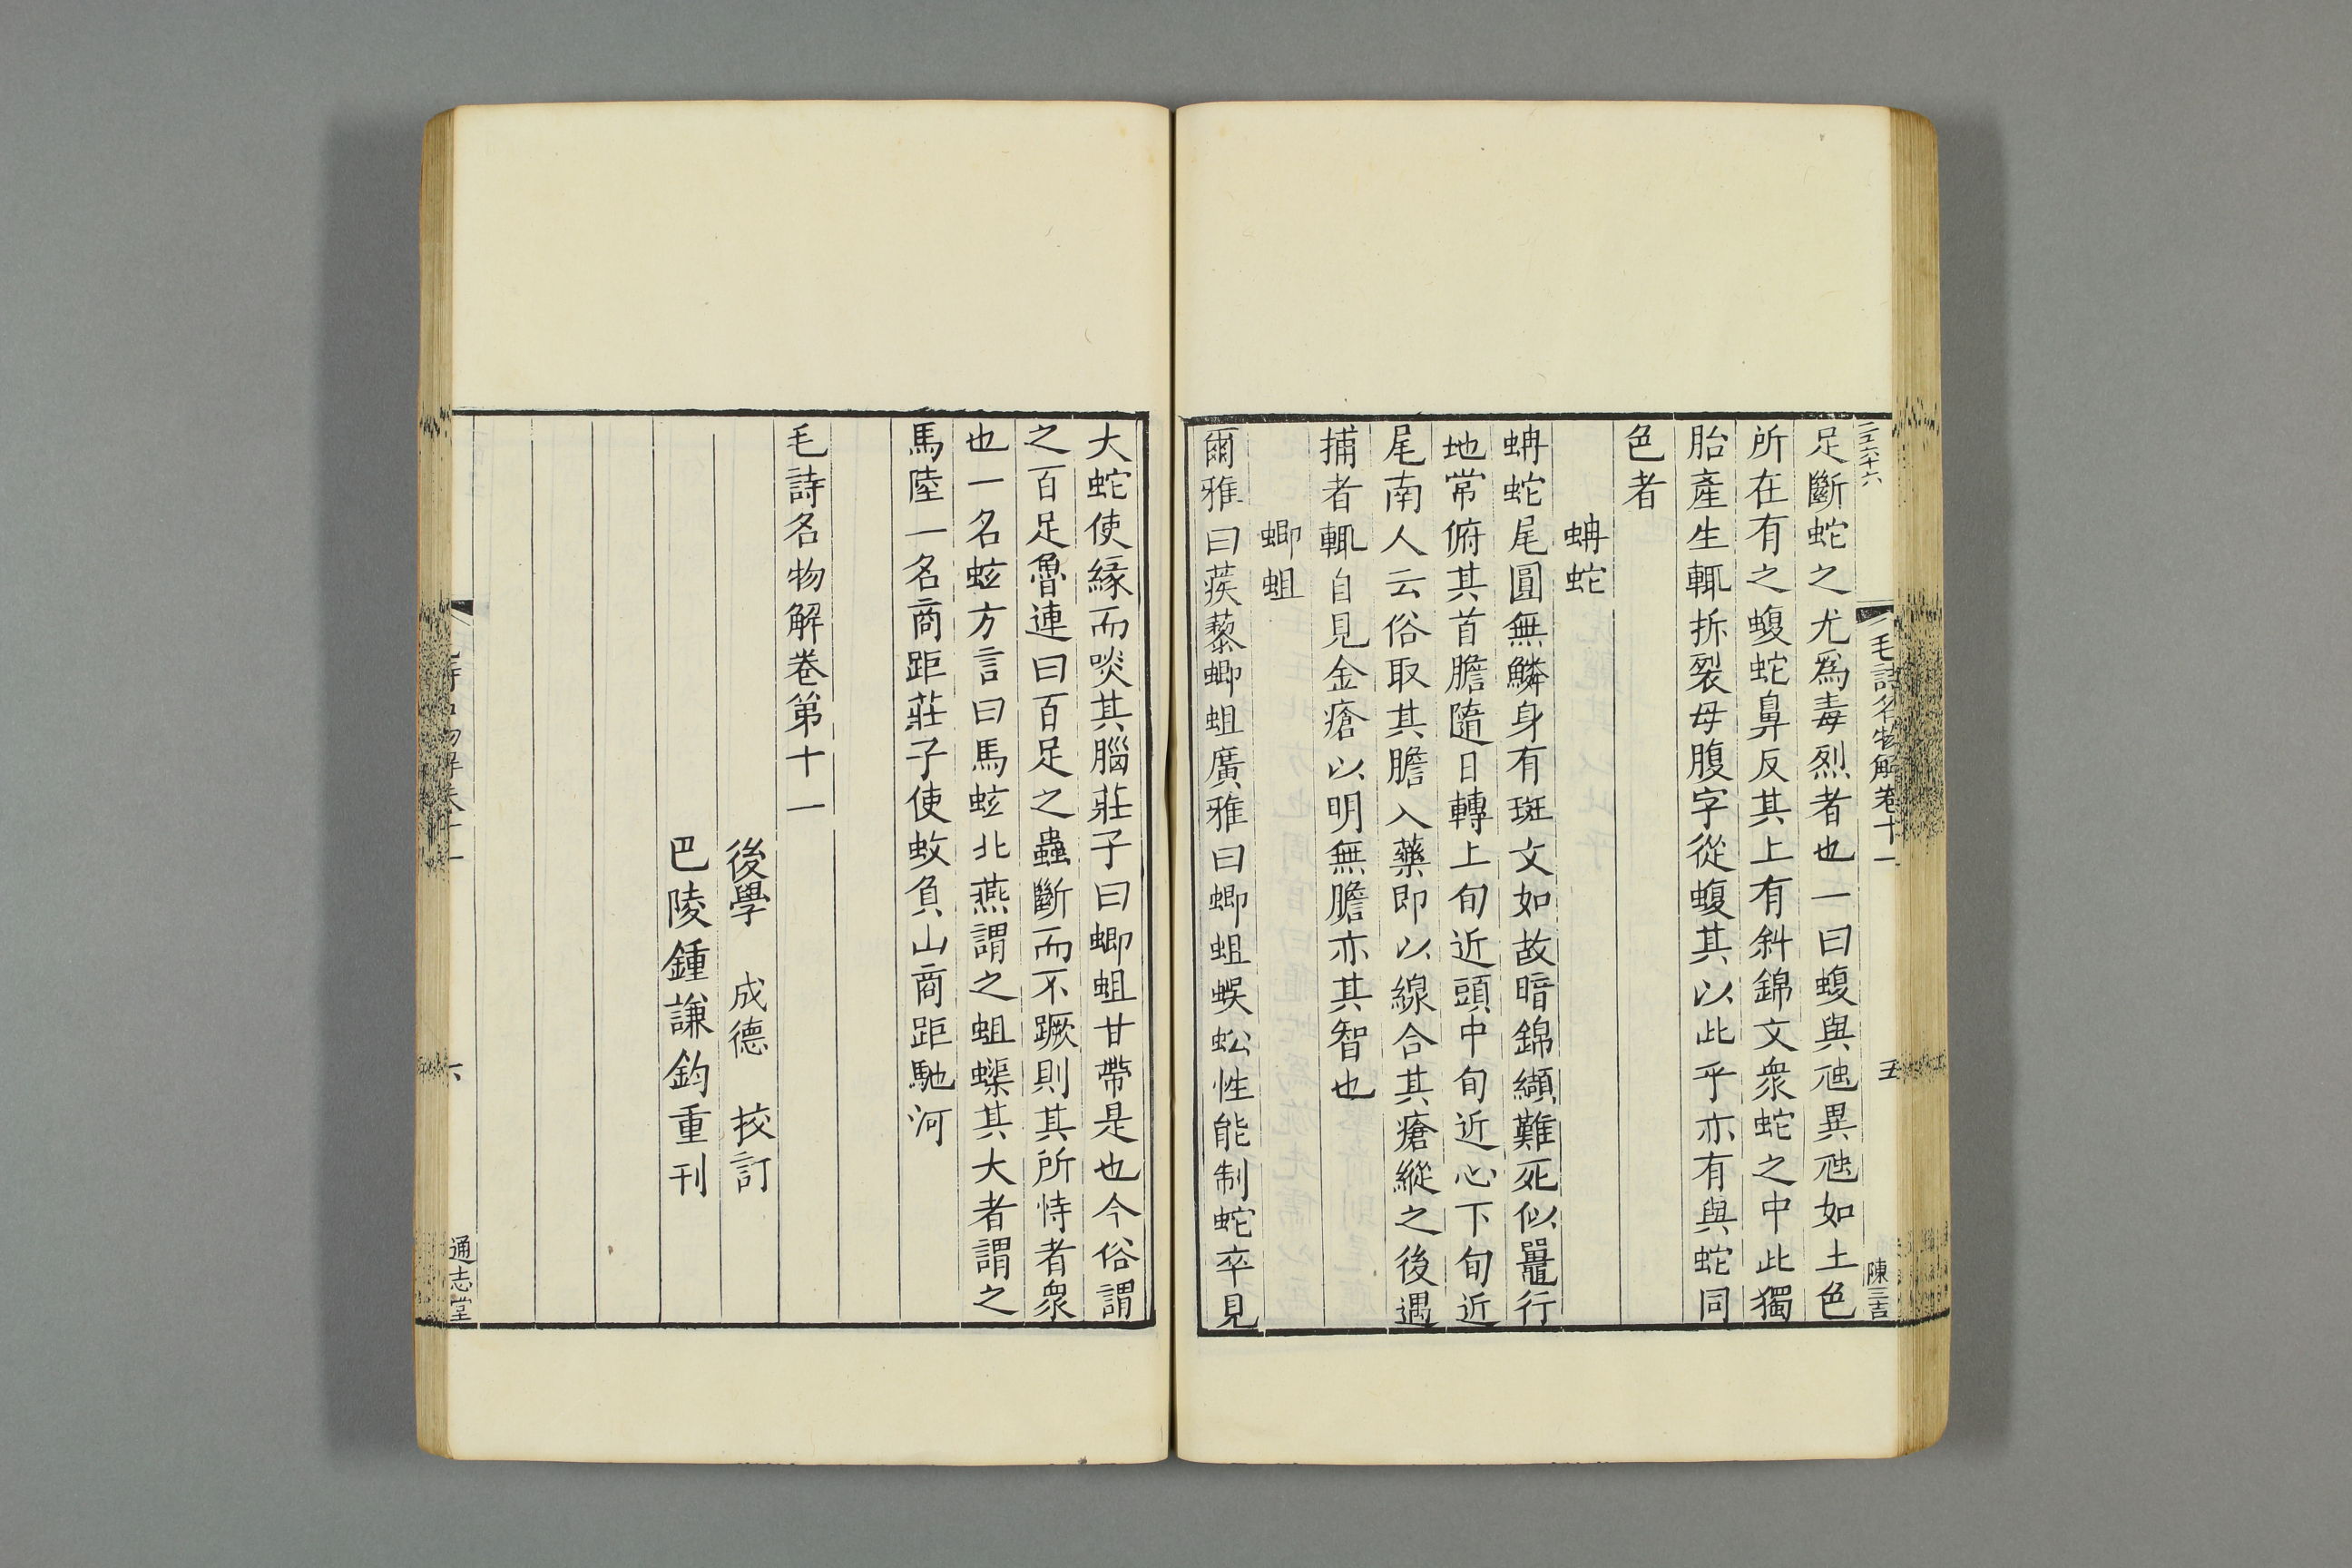 二百六十六
毛詩名物解卷十一
五
陳三吉
足斷蛇之尤爲毒烈者也一曰蝮與虺異虺如土色
所在有之蝮蛇鼻反其上有斜錦文衆蛇之中此獨
胎產生輒拆裂母腹字從蝮其以此乎亦有與蛇同
色者
蚺蛇
蚺蛇尾圓無鱗身有斑文如故暗錦纈難死似鼉行
地常俯其首膽隨日轉上旬近頭中旬近心下旬近
尾南人云俗取其膽入藥即以線合其瘡縱之後遇
捕者輒自見金瘡以明無膽亦其智也
蝍蛆
爾雅曰蒺藜蝍蛆廣雅曰蝍蛆蜈蚣性能制蛇卒見
大蛇使緣而啖其腦莊子曰蝍蛆甘帶是也今俗謂
之百足魯連曰百足之蟲斷而不蹶則其所恃者衆
也一名蚿方言曰馬蚿北燕謂之蛆蟝其大者謂之
馬陸一名商距莊子使蚊負山商距馳河
毛詩名物解卷第十一
後學 成德 挍訂
巴陵鍾謙鈞重刊
六
通志堂